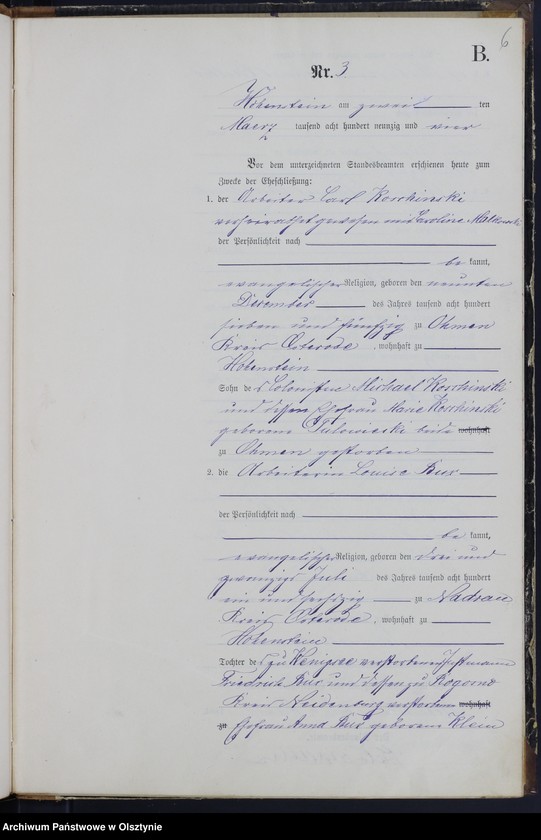 6
B.
Nr. 3
Hohenstein am zwei ten
Maerz tausend acht hundert neunzig und vier
Vor dem unterzeichneten Standesbeamten erschienen heute zum
Zwecke der Eheschließung:
1. der Arbeiter Carl Koschinski
verheirathet gewesen mit Caroline Malkowski
der Persönlichkeit nach
be kannt,
evangelischer Religion, geboren den neunten
Dezember des Jahres tausend acht hundert
sieben und fünfzig zu Ohmen
Kreis Osterode, wohnhaft zu
Hohenstein
Sohn des Michael Koschinski
und dessen Ehefrau Marie Koschinski
geborene beide wohnhaft
zu Ohmen gestorben
2. die Arbeiterin Louise Bux
der Persönlichkeit nach
be kannt,
evangelischer Religion, geboren den drei und
zwanzig Juli des Jahres tausend acht hundert
ein und sechszig zu Nadrau
Kreis Osterode, wohnhaft zu
Hohenstein
Tochter des zu verstorbenen
Friedrich Bux und dessen zu Rogonno
Kreis Neidenburg verstorbene wohnhaft
zu Ehefrau Anna Bux geborene Klein
Archiwum Państwowe w Olsztynie